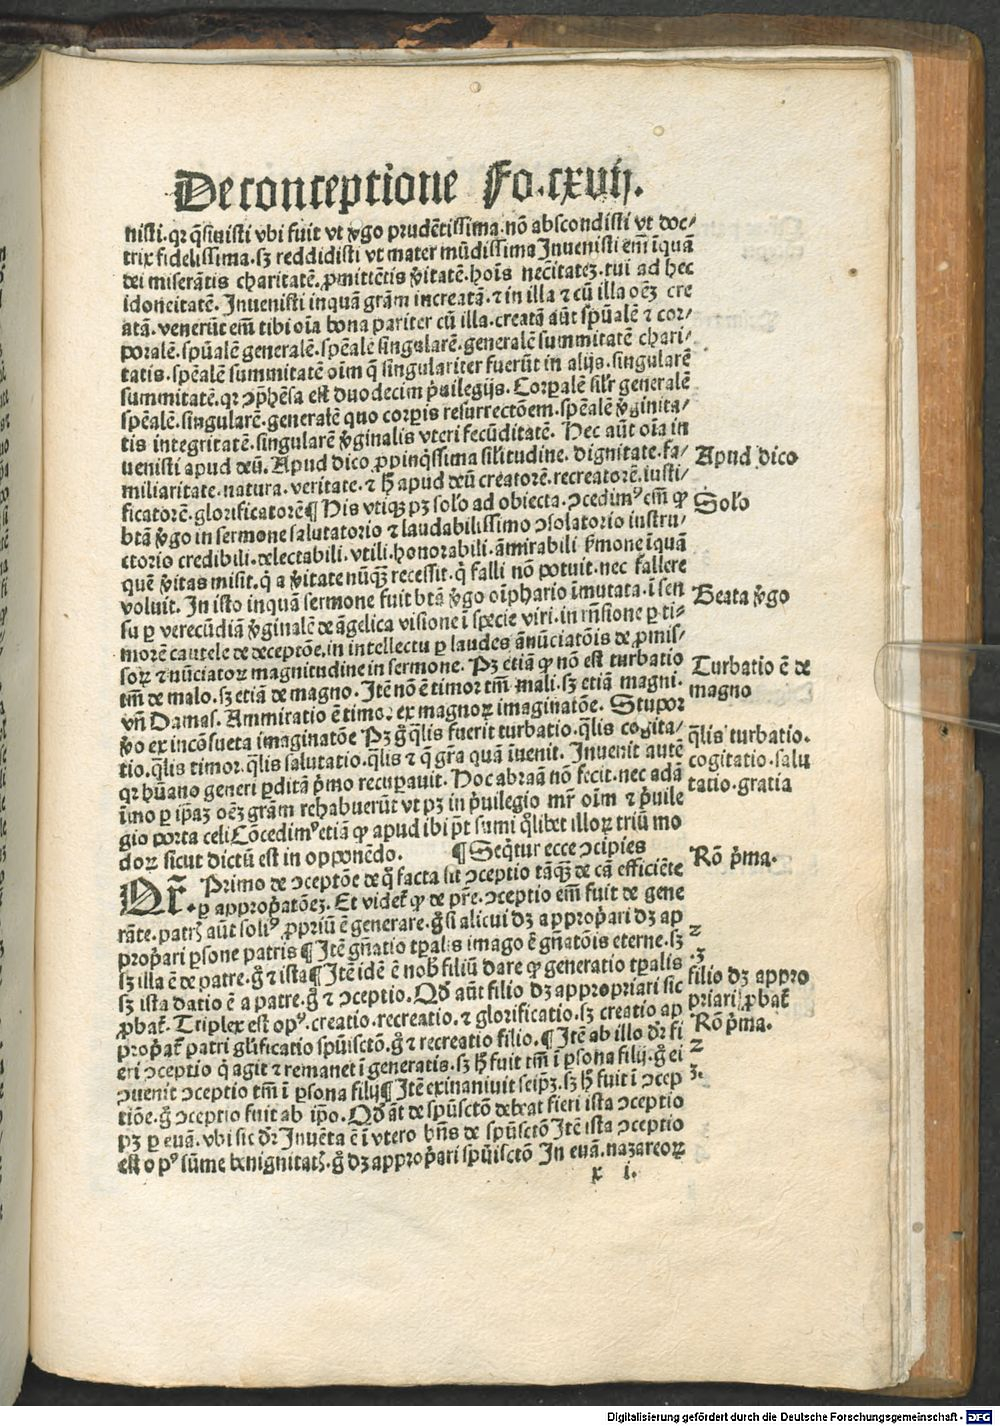 De conceptione Fo.cxvij.
nisti.qr q̄siuisti vbi fuit vt v̄go prudētissima.nō abscondisti vt doc⸗
trix fidelissima.sꝫ reddidisti vt mater mūdissima Inuenisti em̄ īquā
dei miserātis charitatē.ꝓmittētis v̄itatē.hoīs necītateꝫ.tui ad hec
idoneitatē. Inuenisti inquā grām increatā.⁊ in illa ⁊ cū illa oēꝫ cre
atā.venerūt em̄ tibi oīa bona pariter cū illa.creatā aūt spūalē ⁊ cor⸗
poralē.spūalē generalē.spēalē singularē.generalē summitatē chari⸗
tatis.spēalē summitatē oīm q̄ singulariter fuerūt in alijs.singularē
summitatē.qr ꝯp̄hēsa est duodecim p̄uilegijs. Corꝑalē sil̓r generalē
spēalē.singularē.generalē quo corꝑis resurrectōem.spēalē v̄ginita⸗
tis integritatē.singularē v̄ginalis vteri fecūditatē. Hec aūt oīa in
uenisti apud deū. Apud dico ꝓpinq̄ssima sil̓itudine.dignitate.fa⸗
miliaritate.natura.veritate.⁊ h̄ apud deū creatorē.recreatorē.iusti⸗
ficatorē.glorificatorē¶ His vtiqꝫ pꝫ sol̓o ad obiecta.ꝯcedimꝰ em̄ ꝙ
btā v̄go in sermone salutatorio ⁊ laudabilissimo ꝯsolatorio instru⸗
ctorio credibili.delectabili.vtili.honorabili.āmirabili s̄mone īquā
quē v̄itas misit.q̄ a v̄itate nūqꝫ recessit.q̄ falli nō potuit.nec fallere
voluit. In isto inquā sermone fuit btā v̄go oīphario īmutata.ī sen
su ꝑ verecūdiā v̄ginalē de āgelica visione ī specie viri.in m̄sione ꝑ ti⸗
morē cautele de deceptōe.in intellectu ꝑ laudes ānūciatōis de ꝓmis⸗
soꝝ ⁊ nūciatoꝝ magnitudine in sermone. Pꝫ etiā ꝙ nō est turbatio
tm̄ de malo.sꝫ etiā de magno. Itē nō ē timor tm̄ mali.sꝫ etiā magni.
vn̄ Damas. Ammiratio ē timor ex magnoꝝ imaginatōe. Stupor
v̄o ex incōsueta imaginatōe Pꝫ g̊ q̄lis fuerit turbatio.q̄lis cogita⸗
tio.q̄lis timor.q̄lis salutatio.q̄lis ⁊ q̄ grā quā īuenit. Inuenit autē
qr hūano generi ꝑditā p̄mo recuꝑauit. Hoc abraā nō fecit.nec adā
īmo ꝑ ip̄aꝫ oēꝫ grām rehabuerūt vt pꝫ in p̄uilegio mr̄ oīm ⁊ p̄uile
gio porta celi Cōcedimꝰ etiā ꝙ apud ibi p̄t sumi q̄libet illoꝝ triū mo
doꝝ sicut dictū est in opponēdo. ¶ Seq̄tur ecce ꝯcipies
Qr̄. Primo de ꝯceptōe de q̄ facta sit ꝯceptio tāqꝫ de cā efficiēte
ꝑ appropatōeꝫ. Et videt̄ ꝙ de pr̄e.ꝯceptio em̄ fuit de gene
rāte.patrꝭ aūt soliꝰ ꝓpriū ē generare.g̊ si alicui dꝫ appropari dꝫ ap
propari ꝑsone patris¶ Itē gn̄atio tꝑalis imago ē gn̄atōis eterne.sꝫ
sꝫ illa ē de patre.g̊ ⁊ ista¶ Itē idē ē nob̄ filiū dare ꝙ generatio tꝑalis
sꝫ ista datio ē a patre.g̊ ⁊ ꝯceptio. Qd̄ aūt filio dꝫ appropriari sic
ꝓbat̄. Triplex est opꝰ.creatio.recreatio.⁊ glorificatio.sꝫ creatio ap
propat̄ patri gl̓ificatio spūisctō.g̊ ⁊ recreatio filio.¶ Itē ab illo dr̄ fi
eri ꝯceptio q̄ agit ⁊ remanet ī generatis.sꝫ h̄ fuit tm̄ ī ꝑsona filij.g̊ ei
ꝯuenit ꝯceptio tm̄ ī ꝑsona filij¶ Itē exinaniuit seip̄ꝫ.sꝫ h̄ fuit ī ꝯcep
tiōe.g̊ ꝯceptio fuit ab ip̄o. Qd̄ āt de spūsctō debeat fieri ista ꝯceptio
pꝫ ꝑ euā.vbi sic dr̄ Inuēta ē ī vtero hn̄s de spūsctō Itē ista ꝯceptio
est opꝰ sūme benignitatꝭ.g̊ dꝫ appropari spūisctō In euā.nazareoꝝ
x i.
Apud dico
Sol̓o
Beata v̄go
Turbatio ē de
magno
q̄lis turbatio.
cogitatio.salu
tatio.gratia
Rō p̄ma.
2
.3
filio dꝫ appro
priari ꝓbat̄
Rō p̄ma.
2
3.